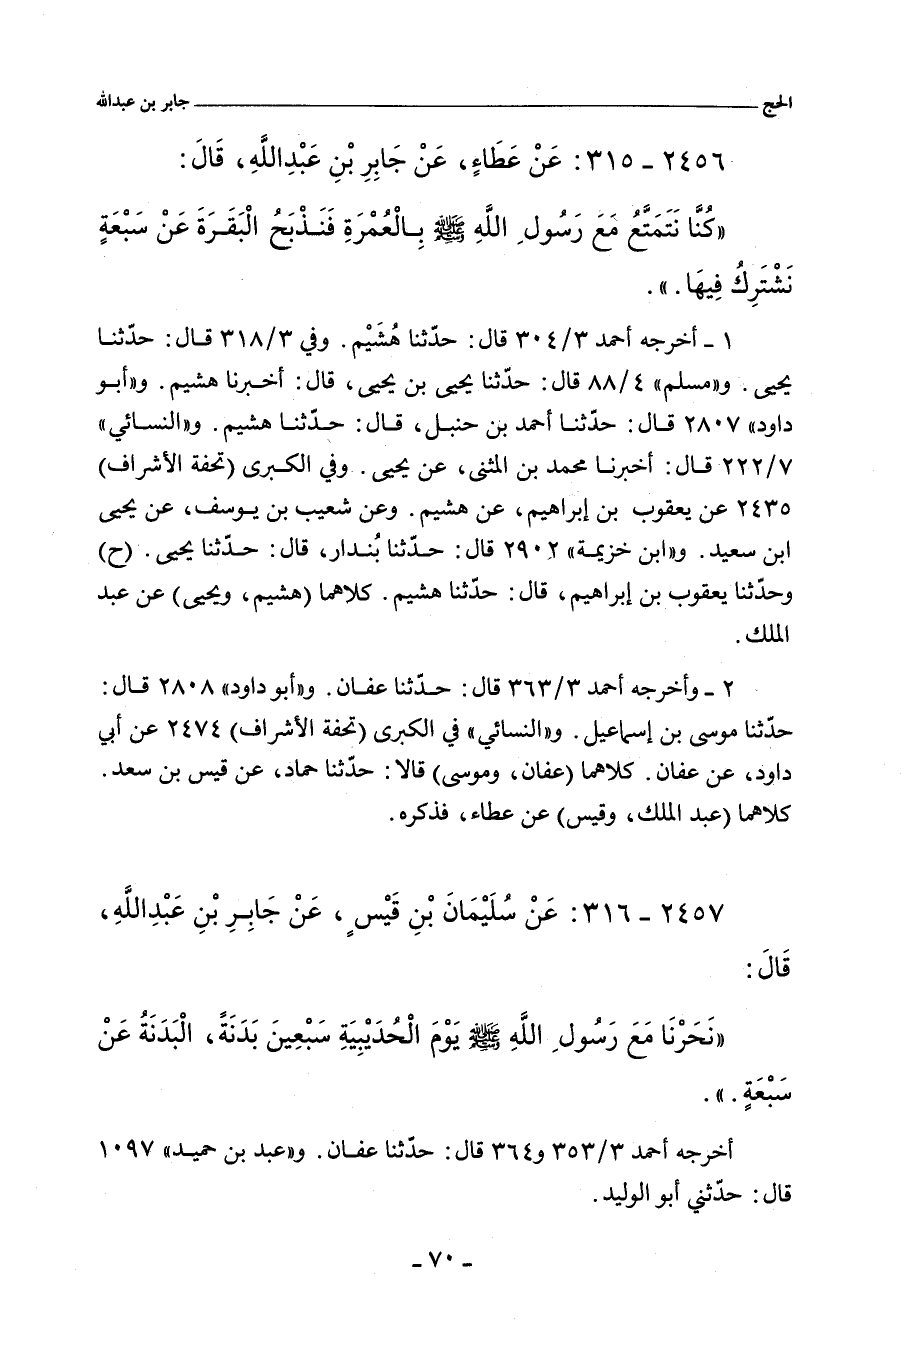 الحج ــــــــــــــــــــ جابر بن عبدالله
٢٤٥٦ ـ ٣١٥: عَنْ عَطَاءٍ، عَنْ جَابِرِ بْنِ عَبْدِاللَّهِ، قَالَ:
«كُنَّا نَتَمَتَّعُ مَعَ رَسُولِ اللَّهِ ﷺ بِالْعُمْرَةِ فَنَذْبَحُ الْبَقَرَةَ عَنْ سَبْعَةٍ
نَشْتَرِكُ فِيهَا.».
١ ـ أخرجه أحمد ٣٠٤/٣ قال: حدّثنا هُشَيْم. وفي ٣١٨/٣ قال: حدّثنا
يحيى. و«مسلم» ٨٨/٤ قال: حدّثنا يحيى بن يحيى، قال: أخبرنا هشيم. و«أبو
داود» ٢٨٠٧ قال: حدّثنا أحمد بن حنبل، قال: حدّثنا هشيم. و«النسائي»
٢٢٢/٧ قال: أخبرنا محمد بن المثنى، عن يحيى. وفي الكبرى (تحفة الأشراف)
٢٤٣٥ عن يعقوب بن إبراهيم، عن هشيم. وعن شعيب بن يوسف، عن يحيى
ابن سعيد. و«ابن خزيمة» ٢٩٠٢ قال: حدّثنا بُندار، قال: حدّثنا يحيى. (ح)
وحدّثنا يعقوب بن إبراهيم، قال: حدّثنا هشيم. كلاهما (هشيم، ويحيى) عن عبد
الملك.
٢ ـ وأخرجه أحمد ٣٦٣/٣ قال: حدّثنا عفان. و«أبو داود» ٢٨٠٨ قال:
حدّثنا موسى بن إسماعيل. و«النسائي» في الكبرى (تحفة الأشراف) ٢٤٧٤ عن أبي
داود، عن عفان. كلاهما (عفان، وموسى) قالا: حدّثنا حماد، عن قيس بن سعد.
كلاهما (عبد الملك، وقيس) عن عطاء، فذكره.
٢٤٥٧ ـ ٣١٦: عَنْ سُلَيْمَانَ بْنِ قَيْسٍ، عَنْ جَابِرِ بْنِ عَبْدِاللَّهِ،
قَالَ:
«نَحَرْنَا مَعَ رَسُولِ اللَّهِ ﷺ يَوْمَ الْحُدَيْبِيَةِ سَبْعِينَ بَدَنَةً، الْبَدَنَةُ عَنْ
سَبْعَةٍ.».
أخرجه أحمد ٣٥٣/٣ و٣٦٤ قال: حدّثنا عفان. و«عبد بن حميد» ١٠٩٧
قال: حدّثني أبو الوليد.
ـ ٧٠ ـ